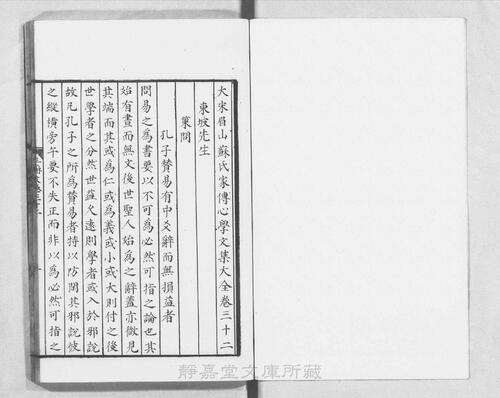 大宋眉山蘇氏家傳心學文集大全卷三十二
東坡先生
策問
孔子贊易有中爻辭而無損益者
問易之為書要以不可為必然可指之論也其
始有畫而無文後世聖人始為之辭蓋亦微見
其端而其或為仁或為義或小或大則付之後
世學者之分然世益久遠則學者或入於邪說
故凡孔子之所為贊易者特以防閑其邪說使
之縱橫旁午要不失正而非以為必然可指之
靜嘉堂文庫所藏